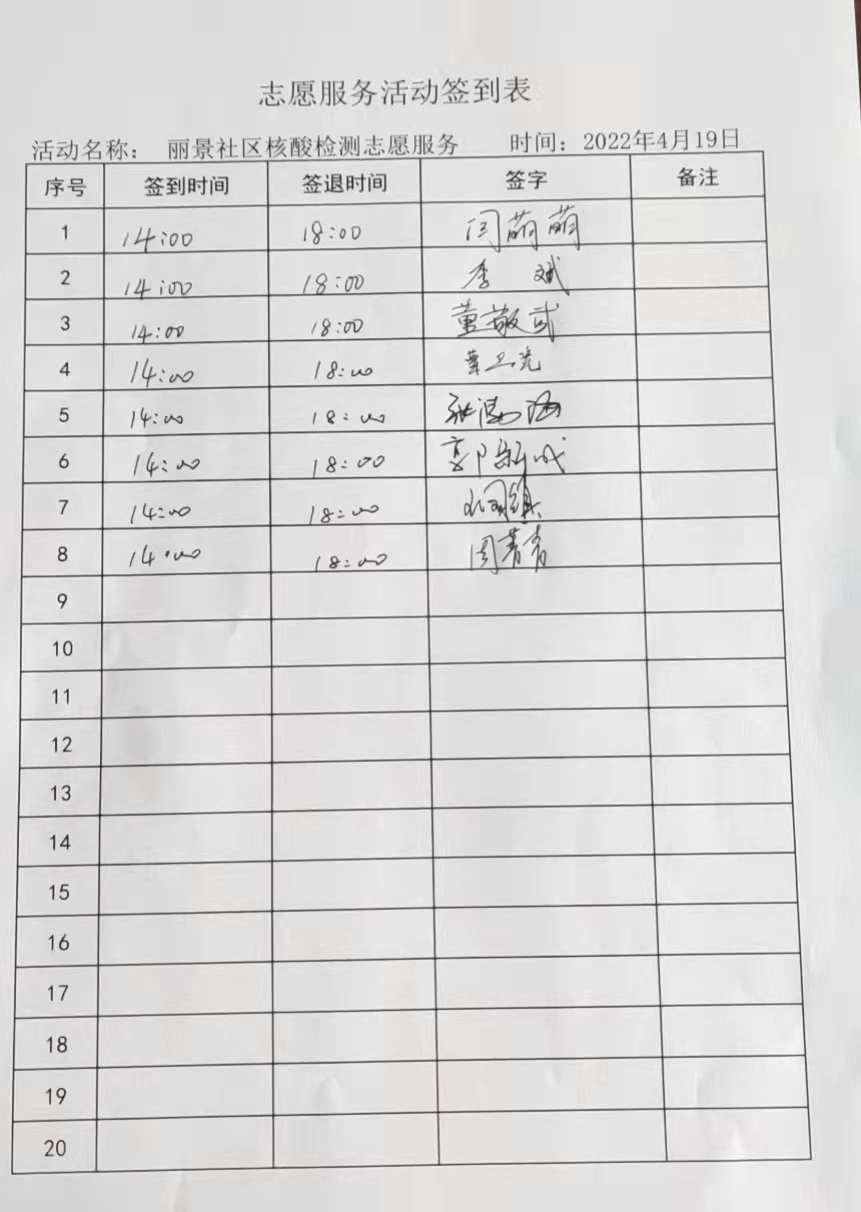 志愿服务活动签到表
活动名称： 丽景社区核酸检测志愿服务 时间：2022年4月19日
序号 签到时间 签退时间 签字 备注
1 14:00 18:00 闫萌萌
2 14:00 18:00 李斌
3 14:00 18:00 董敬武
4 14:00 18:00
5 14:00 18:00
6 14:00 18:00 郭新成
7 14:00 18:00
8 14:00 18:00 周菁青
9
10
11
12
13
14
15
16
17
18
19
20